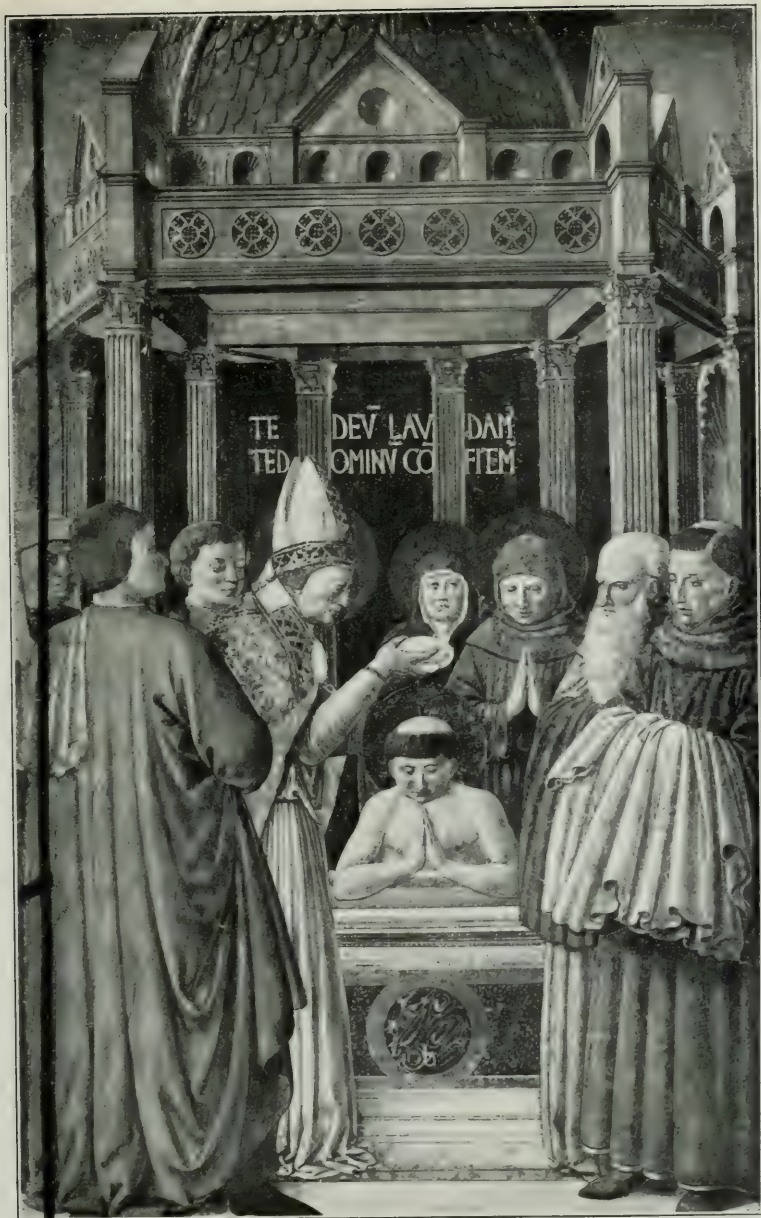 TE DEV̄ LAV̄ DAM̄
TED OMINV CO FITEM